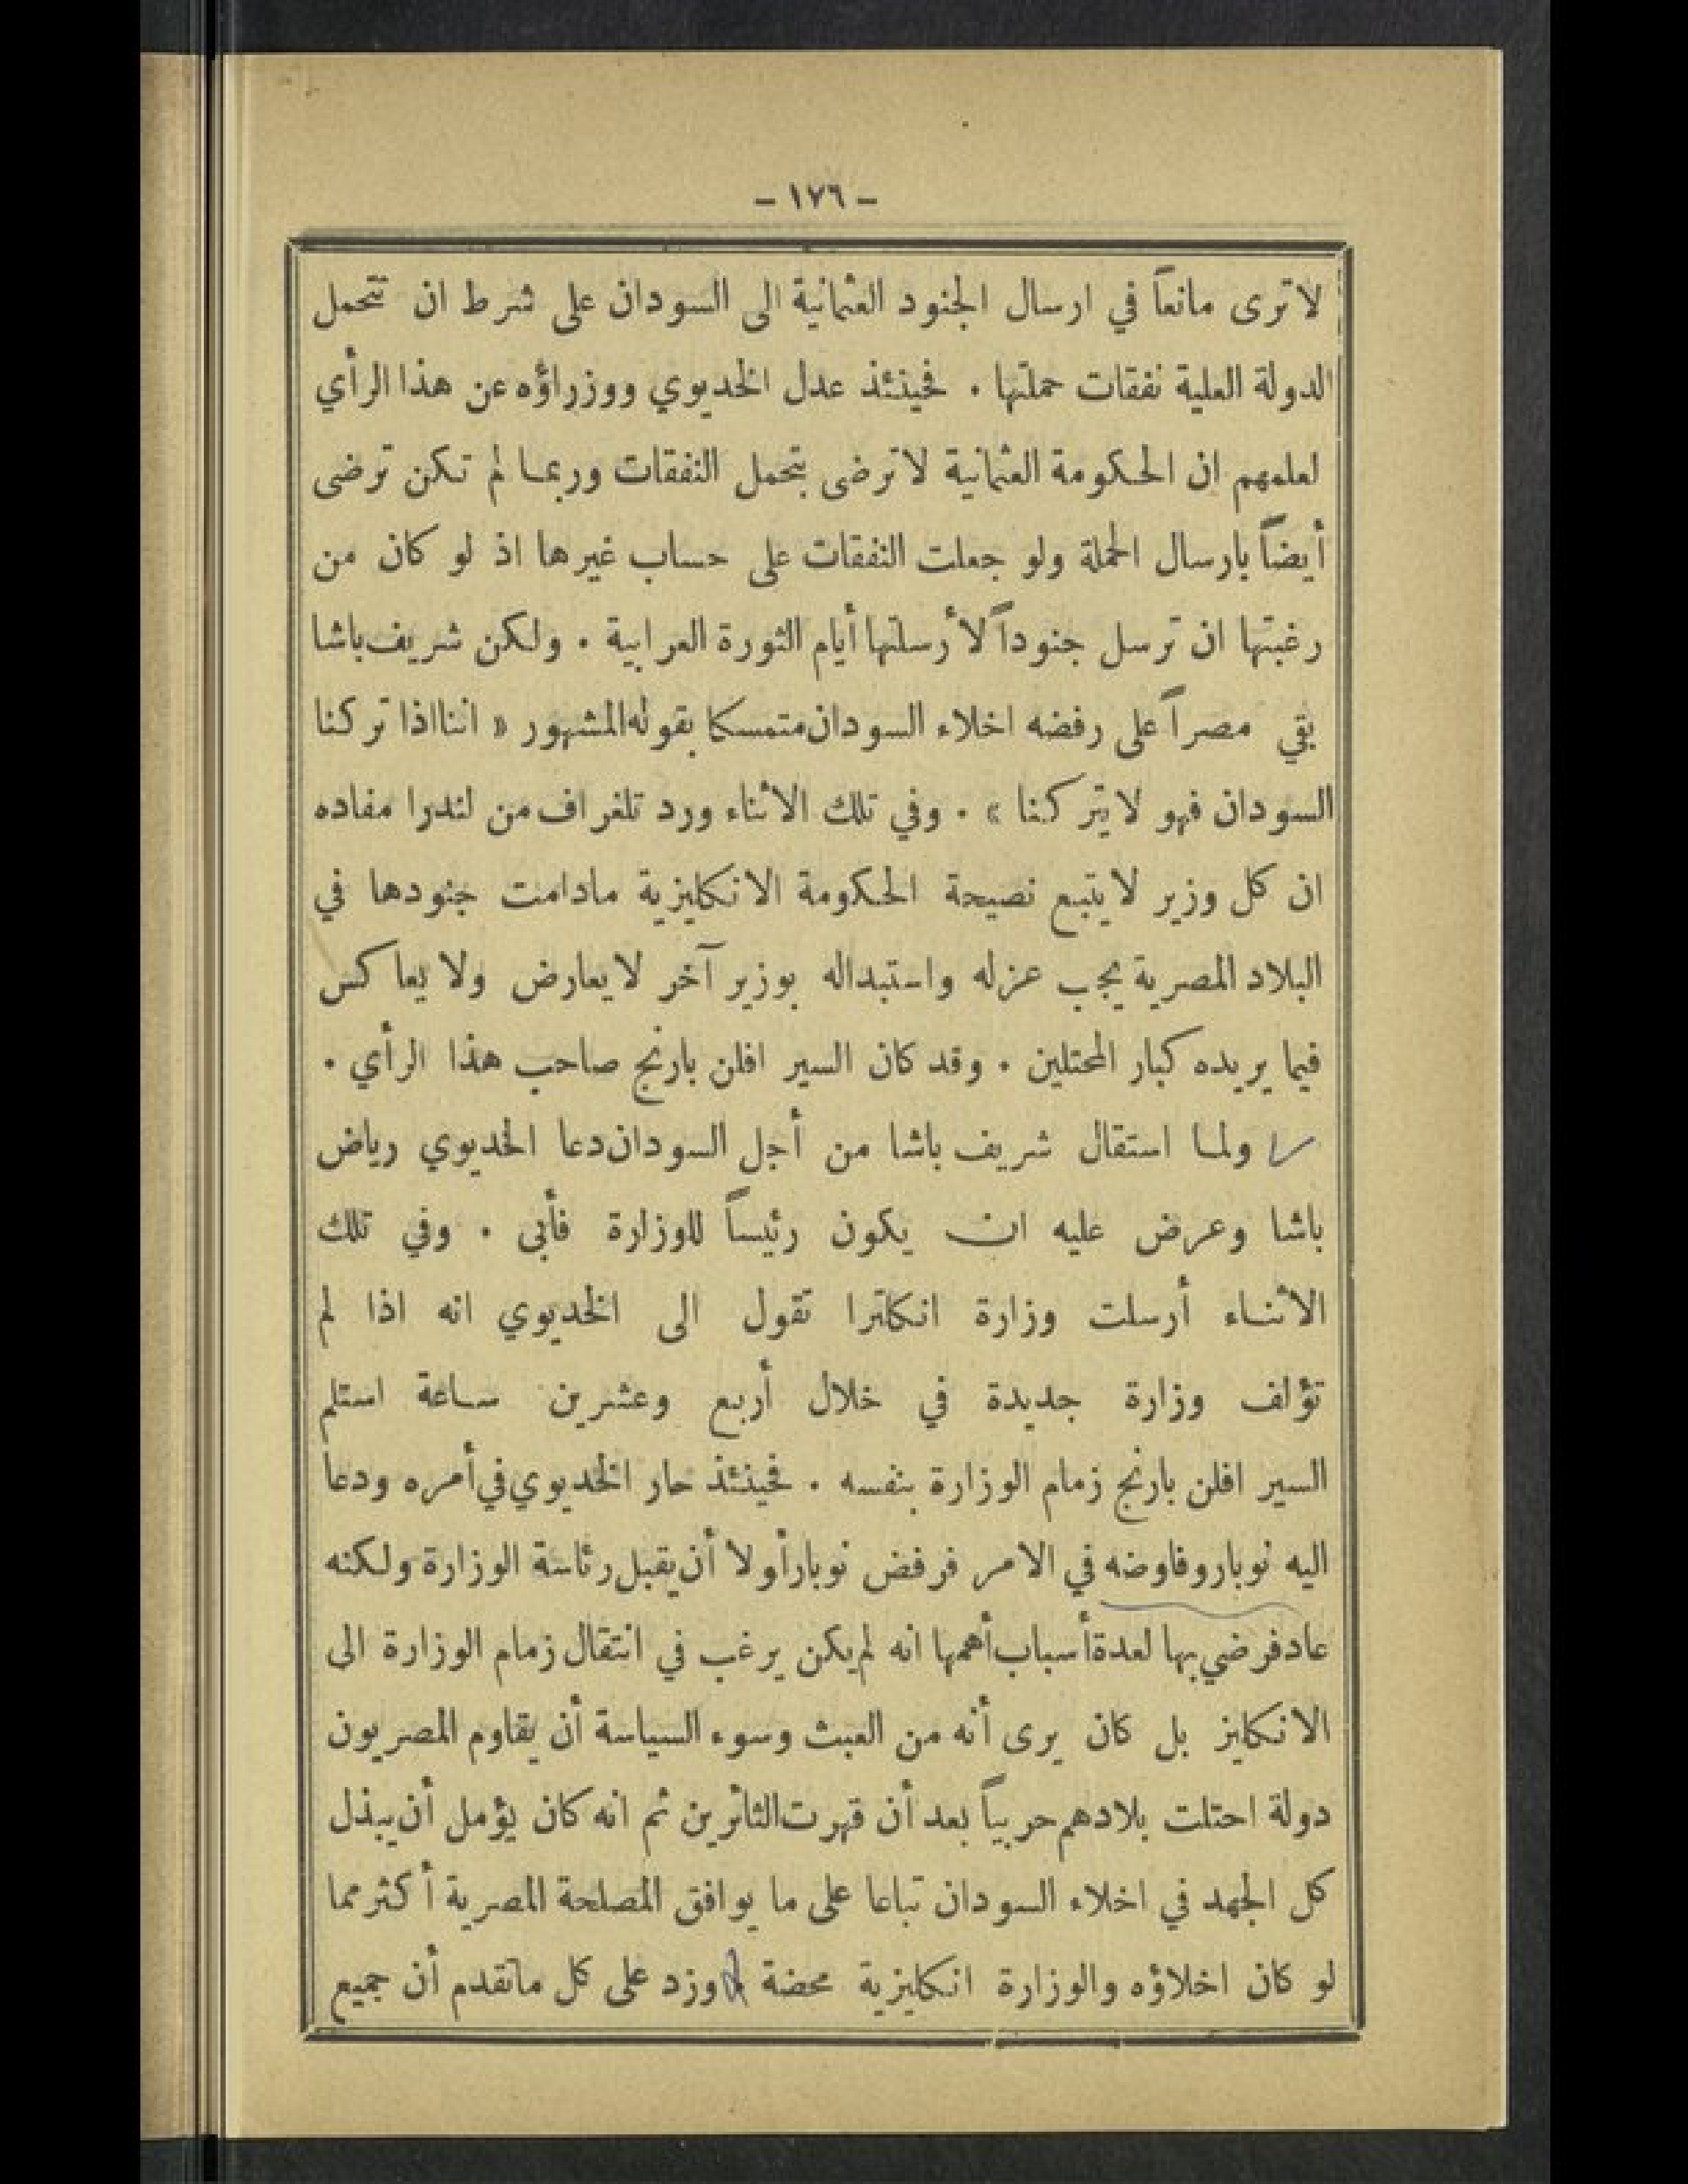 – ١٧٦ –
لا ترى مانعاً في ارسال الجنود العثمانية الى السودان على شرط ان تتحمل
الدولة العلية نفقات حملتها . فحينئذ عدل الخديوي ووزراؤه عن هذا الرأي
لعلمهم ان الحكومة العثمانية لا ترضى بتحمل النفقات وربما لم تكن ترضى
أيضاً بارسال الحملة ولو جعلت النفقات على حساب غيرها اذ لو كان من
رغبتها ان ترسل جنوداً لأرسلتها أيام الثورة العرابية . ولكن شريف باشا
بقي مصراً على رفضه اخلاء السودان متمسكا بقوله المشهور « اننا اذا تركنا
السودان فهو لا يتركنا » . وفي تلك الاثناء ورد تلغراف من لندرا مفاده
ان كل وزير لا يتبع نصيحة الحكومة الانكليزية مادامت جنودها في
البلاد المصرية يجب عزله واستبداله بوزير آخر لا يعارض ولا يعاكس
فيما يريده كبار المحتلين . وقد كان السير افلن بارنج صاحب هذا الرأي .
ولما استقال شريف باشا من أجل السودان دعا الخديوي رياض
باشا وعرض عليه ان يكون رئيساً للوزارة فأبى . وفي تلك
الاثناء أرسلت وزارة انكلترا تقول الى الخديوي انه اذا لم
تؤلف وزارة جديدة في خلال أربع وعشرين ساعة استلم
السير افلن بارنج زمام الوزارة بنفسه . فحينئذ حار الخديوي في أمره ودعا
اليه نوبار وفاوضه في الامر فرفض نوبار أولا أن يقبل رئاسة الوزارة ولكنه
عاد فرضي بها لعدة أسباب أهمها انه لم يكن يرغب في انتقال زمام الوزارة الى
الانكليز بل كان يرى أنه من العبث وسوء السياسة أن يقاوم المصريون
دولة احتلت بلادهم حربياً بعد أن قهرت الثائرين ثم انه كان يؤمل أن يبذل
كل الجهد في اخلاء السودان تباعا على ما يوافق المصلحة المصرية أكثر مما
لو كان اخلاؤه والوزارة انكليزية محضة وزد على كل ما تقدم أن جميع